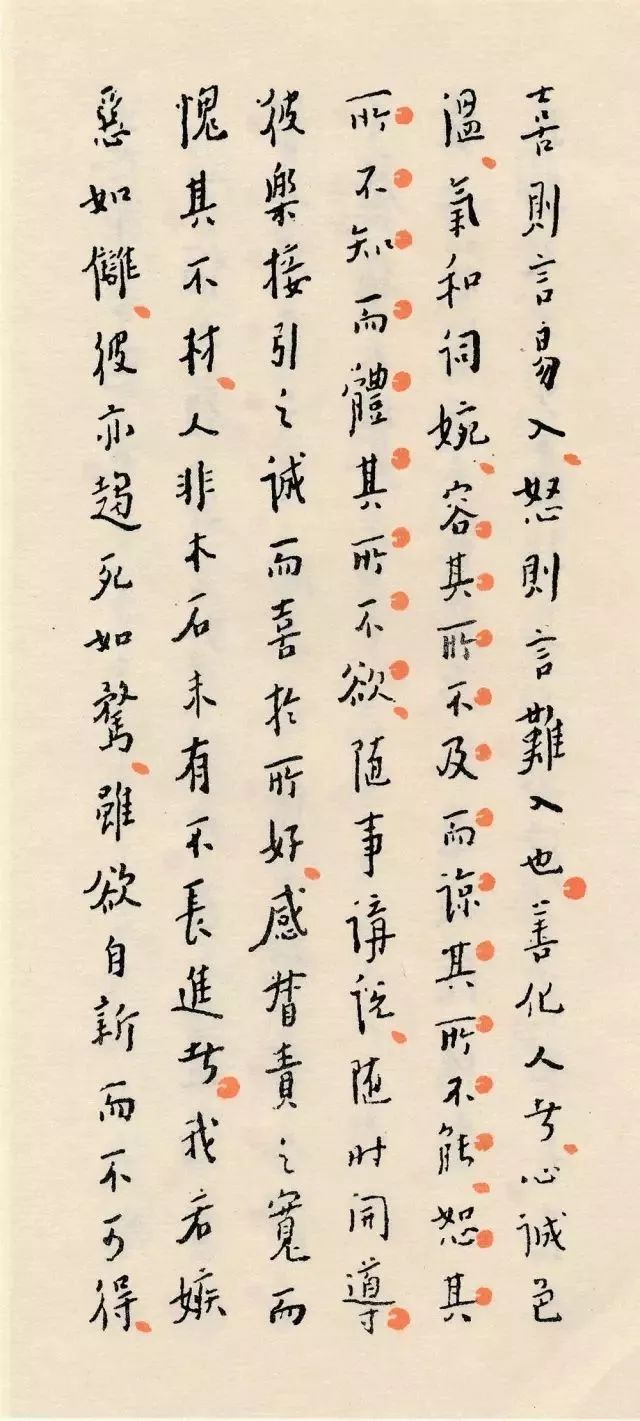 喜則言易入怒則言難入也善化人者心誠色
溫氣和詞婉容其所不及而諒其所不能恕其
所不知而體其所不欲随事講說随时開導
彼樂接引之誠而喜於所好感督責之寬而
愧其不材人非木石未有不長進者我若嫉
惡如讎彼亦趨死如鶩雖欲自新而不可得